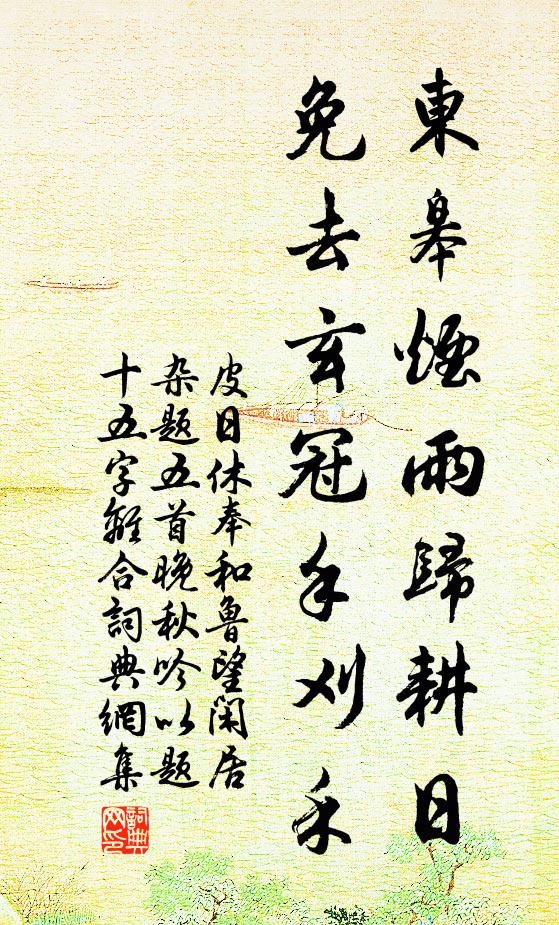 東皋煙雨歸耕日
免去玄冠手刈禾
皮日休奉和魯望閑居
杂题五首晚秋吟以题
十五字離合詞典網集
詞典
网印